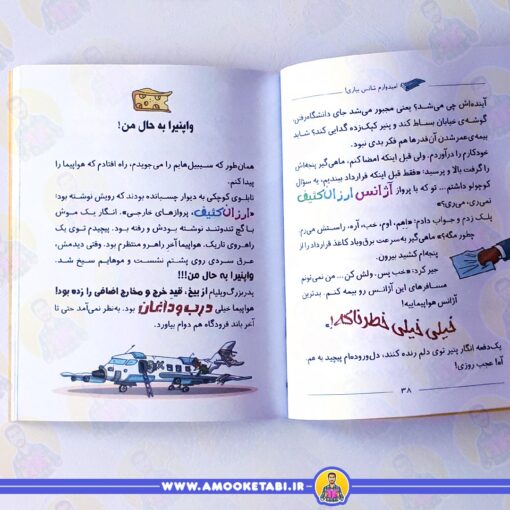 امیدوارم شانس بیاری!
آینده‌اش چی می‌شد؟ یعنی مجبور می‌شد جای دانشگاه‌رفتن،
گوشه‌ی خیابان بساط کند و پنیر کپک‌زده گدایی کند؟ شاید
بیمه‌ی عمرشدن آن‌قدرها هم فکر بدی نبود.
خودکارم را درآوردم. ولی قبل اینکه امضا کنم، ماهی‌گیر پنجه‌اش
را گرفت بالا و پرسید: «فقط قبل اینکه قرارداد ببندیم، یه سؤال
کوچولو داشتم... تو که با پرواز آژانس ارزان‌کثیف
نمی‌ری، می‌ری؟»
پلک زدم و جواب دادم: «اِهِم، اوم، خب، آره. راستش می‌رم.
چطور مگه؟» ماهی‌گیر به‌سرعت برق‌وباد کاغذ قرارداد را از
پنجه‌ام کشید بیرون.
جیر کرد: «خب پس، ولش کن... من نمی‌تونم
مسافرهای این آژانس رو بیمه کنم. بدترین
آژانس هواپیماییه!
خیلی خیلی خطرناکه!»
یک‌دفعه انگار پنیر توی دلم رنده کنند، دل‌وروده‌ام پیچید به هم.
آه! عجب روزی!
۳۸
واپنیرا به حال من!
همان‌طور که سیبیل‌هایم را می‌جویدم، راه افتادم که هواپیما را
پیدا کنم.
تابلوی کوچکی به دیوار چسبانده بودند که رویش نوشته بود:
«ارزان‌کثیف، پروازهای خارجی». انگار یک موش
با گچ تندوتند نوشته بودش و رفته بود. پیچیدم توی یک
راهروی تاریک. هواپیما آخر راهرو منتظرم بود. وقتی دیدمش،
عرق سردی روی پشتم نشست و موهایم سیخ شد.
واپنیرا به حال من!!!
پدربزرگ‌ویلیام از بیخ، قیدِ خرج و مخارج اضافی را زده بود!
هواپیما خیلی درب‌وداغان بود. به‌نظر نمی‌آمد حتی تا
آخر باند فرودگاه هم دوام بیاورد.
WWW.AMOOKETABI.IR